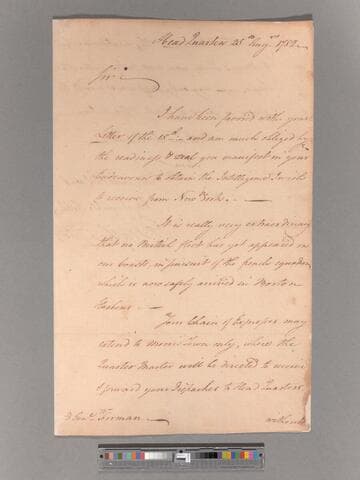 Head Quarters 25th Augst 1782
Sir
I have been favored with your
Letter of the 15th and am much obliged by
the readiness & zeal you manifest in your
Endeavours to obtain the Intelligence I wish
to receive from New York. —
It is really very extraordinary
that no British fleet has yet appeared on
our Coasts in pursuit of the french squadron
which is now safely arrived in Boston
Harbour —
Your Chain of Expresses may
extend to Morris Town only, where the
Quarter Master will be directed to receive
& forward your Dispatches to Head Quarters
Forman
without